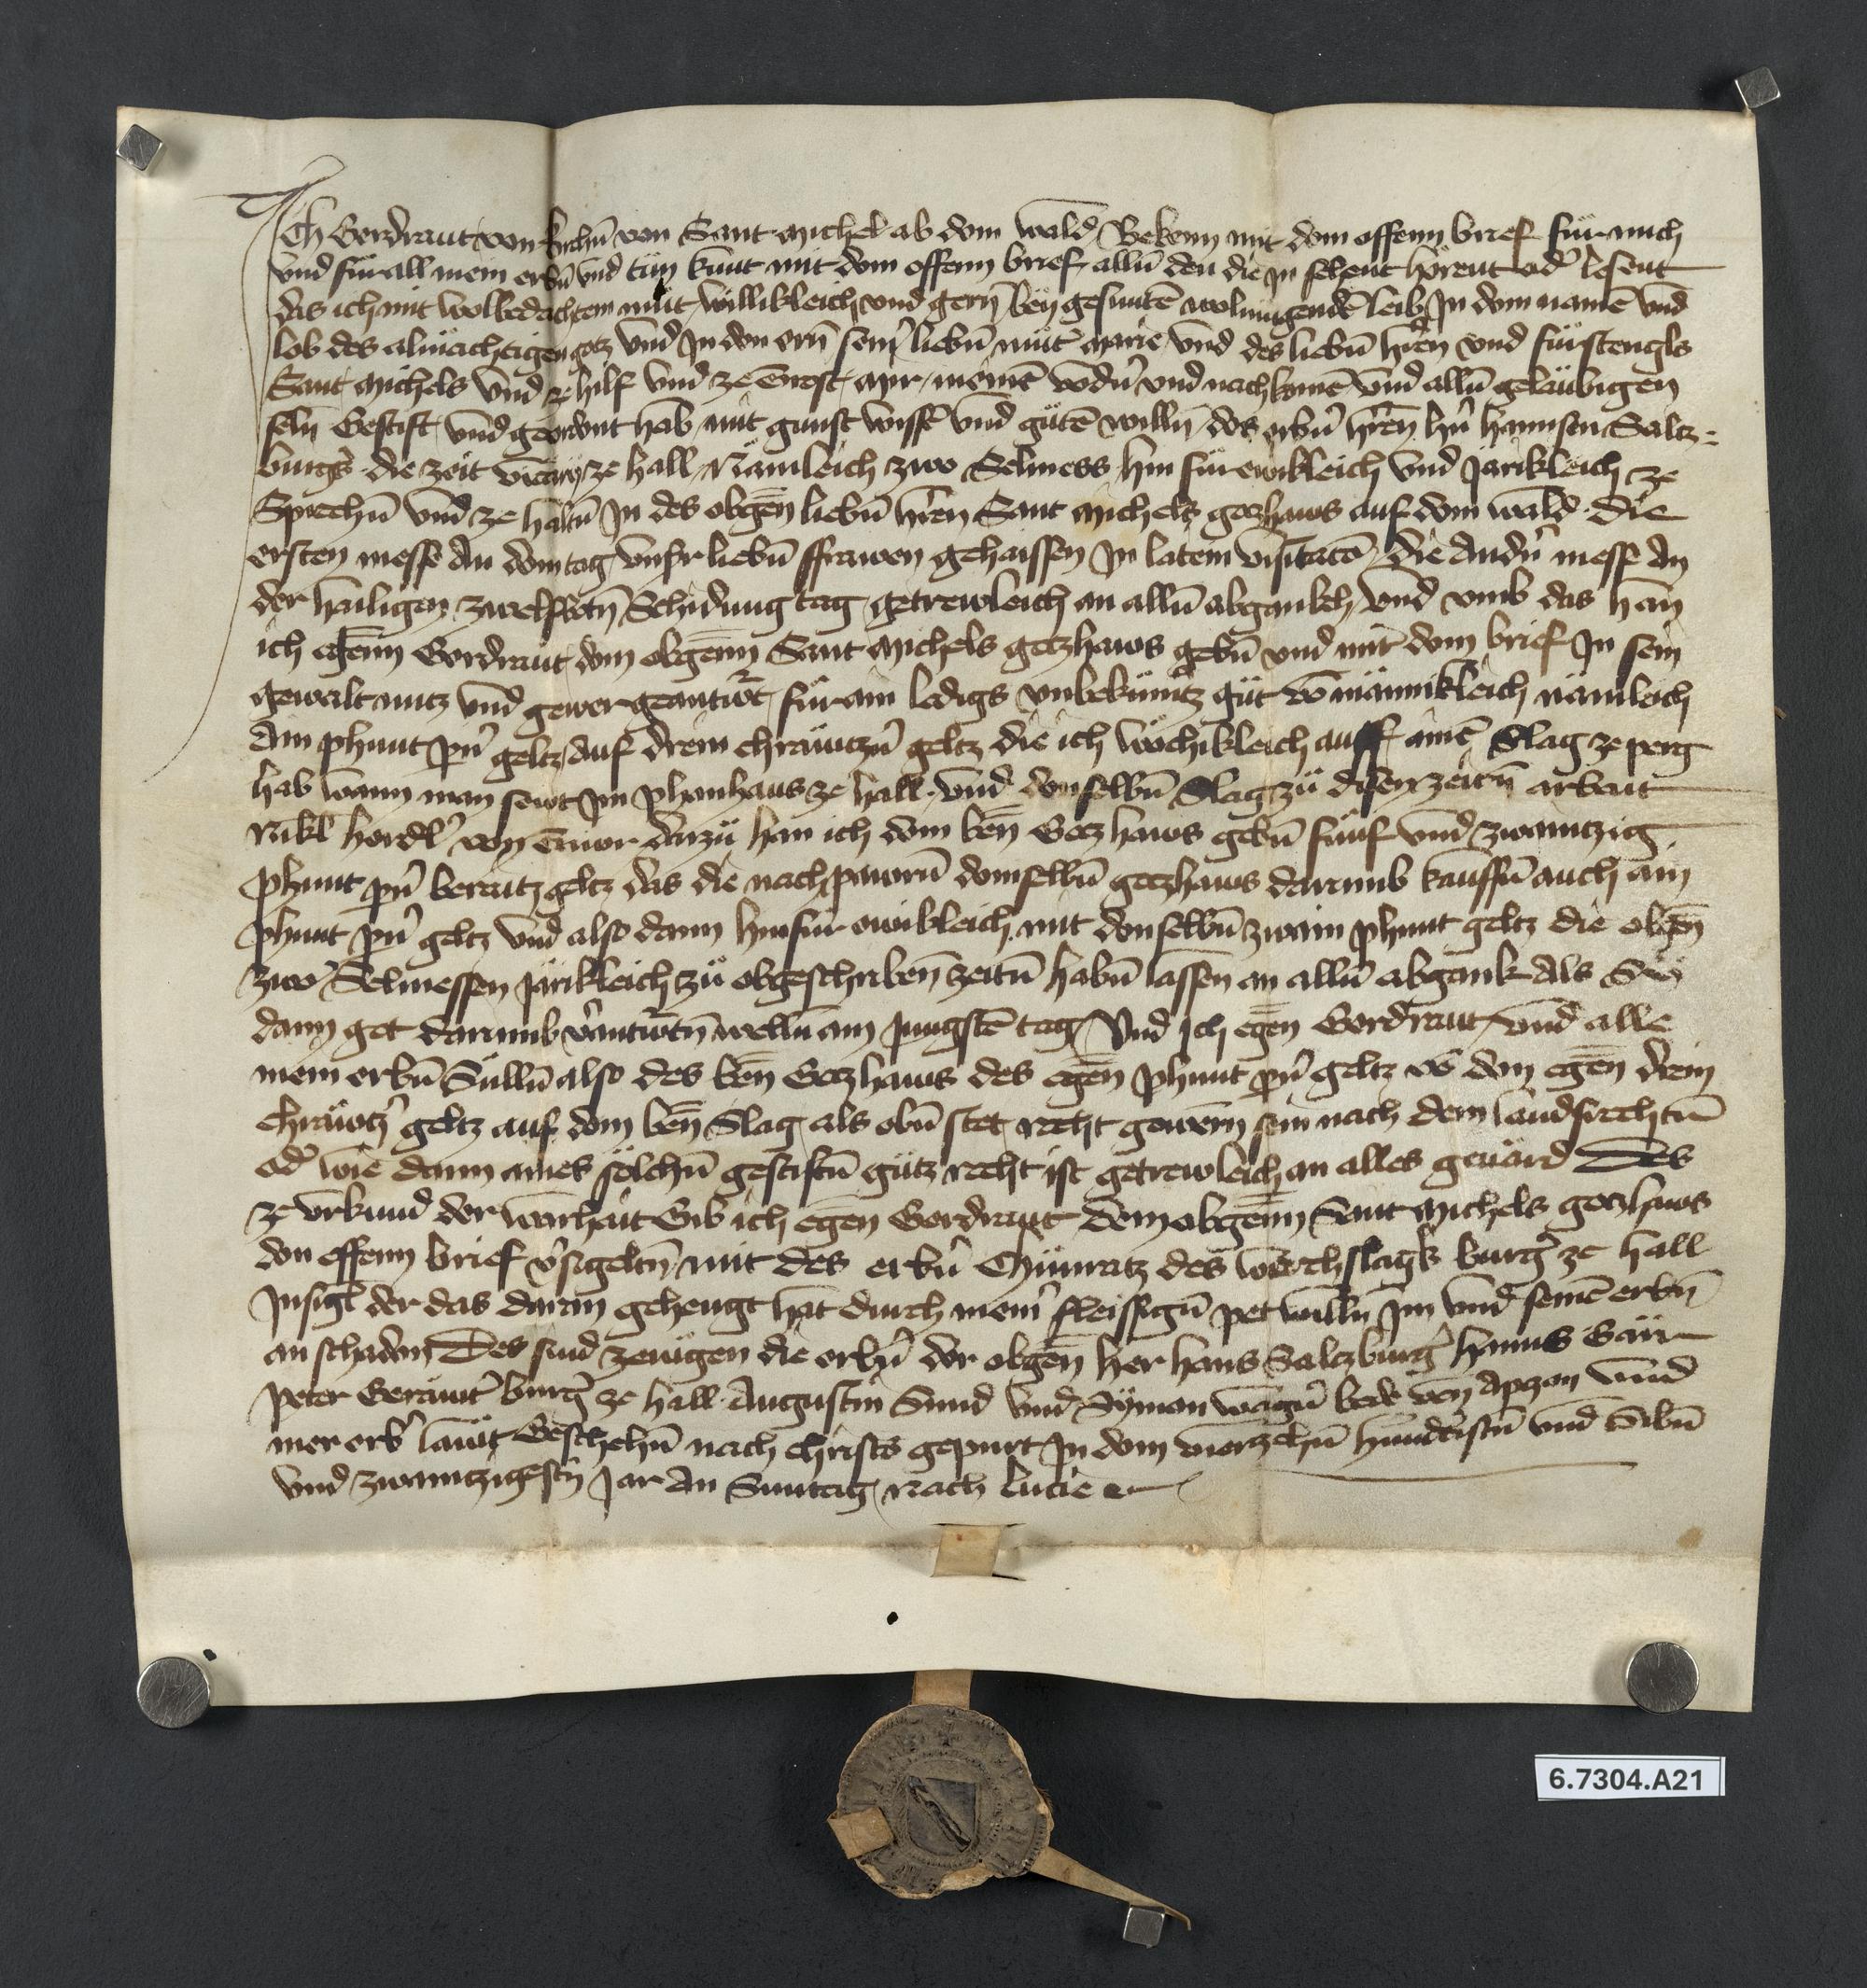 Ich Gerdraut von von Sant Michel ab dem wald Bekenn mit dem offenn brief für mich
vnd für all mein erbn̄ vnd tün kunt mit dem offenn brief alln̄ den die jn sehent hörent od̾ lesent
das ich mit wolbedachtem müt willikleich vnd gern̄ bey gesuntē wolmügendē leib Jn dem namē vnd
lob des almächtigen gotz vnd Jn den ern̄ sein̾ liebn̄ müt̾ Marie vnd des liebn̄ hr̄en vnd fürstengls
Sant Michels vnd ze hilf vnd ze trost mir meinē vnd nachkomē vnd allū geläubigen
seln̄ Gestift vnd geordnt hab mit gunst wissē vnd gütē willn̄ des erbn̾ hr̄en hn̾ hannsen Saltz=
burg̾s die zeit vicary ze hall Nämleich zwo Selmess hin für ewikleich vnd järikleich ze
Sprechn̄ vnd ze haltn̄ Jn des obgēn liebn̄ hr̄en Sant Michels gotzhaws auf dem wald die
ersten messe An dem tag vnsr̾ liebn̄ ffrawen gehaissen Jn latein visitatō die andn̾ mess An
der hailigen zwelfbotn̄ Schidung tag getrewleich an alln̄ abgankch vnd vmb das han
ich egēnn Gerdraut dem obgēnn Sant Michels gotzhaws gebn̄ vnd mit dem brief Jn sein
gewalt nutz vnd gewer geantw̾t für ain ledigs vnbekümt̾z güt vō männikleich nämleich
Ain phunt pn̾ geltz auf drein chräwtzn̾ geltz die ich wöchikleich auff ainē Slag ze perg
hab wann man sewt Jm phanhaus ze hall vnd denselbn̄ Slag zü disen zeitn̄ arbait
Nikl̄ von darzü han ich dem ben̄ Gotzhaws gebn̄ fünf vnd zwaintzig
phunt pn̾ beraitz geltz das die nachpawrn̄ demselbn̄ gotzhaws darumb kauffn̄ auch ain
phunt pn̾ geltz vnd also dann hinfür ewikleich mit denselbn̄ zwain phunt geltz die obgēn
zwo Selmessen järikleich zü obgeschribenn̄ zeitn̄ habn̄ lassen an alln̄ abgank Als Sew
dann got darumb v̾antw̾tn̄ welln̄ am jungstē tag Vnd ich egēn Gerdraut vnd alle
mein erbn̄ Sülln̄ also des ben̄ Gotzhaws des egēn phunt pn̾ geltz vō den egēn drein
chräwtz̾ geltz auf dem ben̄ Slag als obn̄ stet recht gewern sein nach dem landsrechtn̄
od̾ wie dann aines sölchn̄ gestiftn̄ gütz recht ist getrewleich an alles geuärd Des
ze vrkund der warhait Gib ich egēn Gerdraut dem obgēnn Sant Michels gotzhaws
den offenn brief v̾sigeltn̄ mit des erbn̾ Chünratz des burg̾ ze hall
Jnsigl der das daran gehengt hat durch mein̾ fleissign̄ pet willn̄ Jm vnd seinē erbn̄
an schaden Des sind zeuigen die erbn̾ der obgēn her hans Saltzburg̾ hanns
peter burg̾ ze hall Augustin vnd Symon bede von Apzan vnd
mer erb̾ läwt Geschehn̄ nach christs gepurt Jn dem vierzehn̄ hundtistn̄ vnd Sibn̄
vnd zwaintzigestn̄ Jar An Suntag nach lucie
6.7304.A21